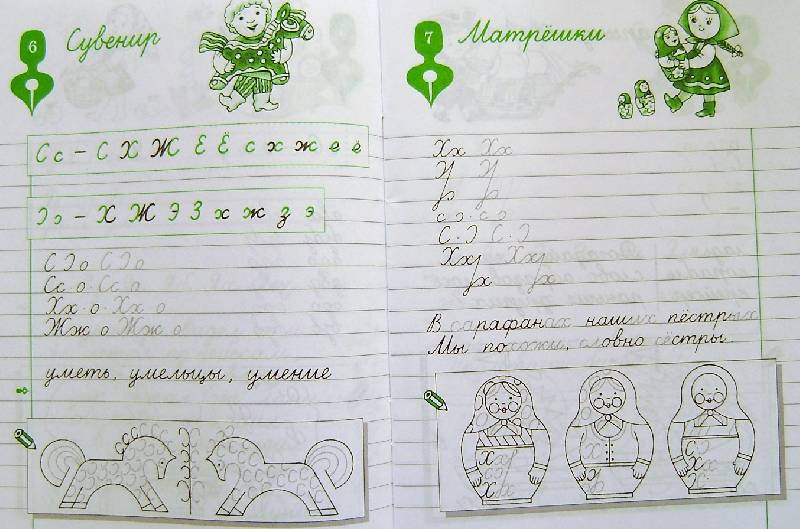 6
Сувенир
Сс – С Х Ж Е Ё с х ж е ё
Ээ – Х Ж Э З х ж з э
С Э о С Э о
Сс о Сс о
Хх о Хх о
Жж о Жж о
уметь, умельцы, умение
7
Матрёшки
Хх Хх
с э с э
С · Э С · Э
В сарафанах наших пёстрых
Мы похожи, словно сёстры.